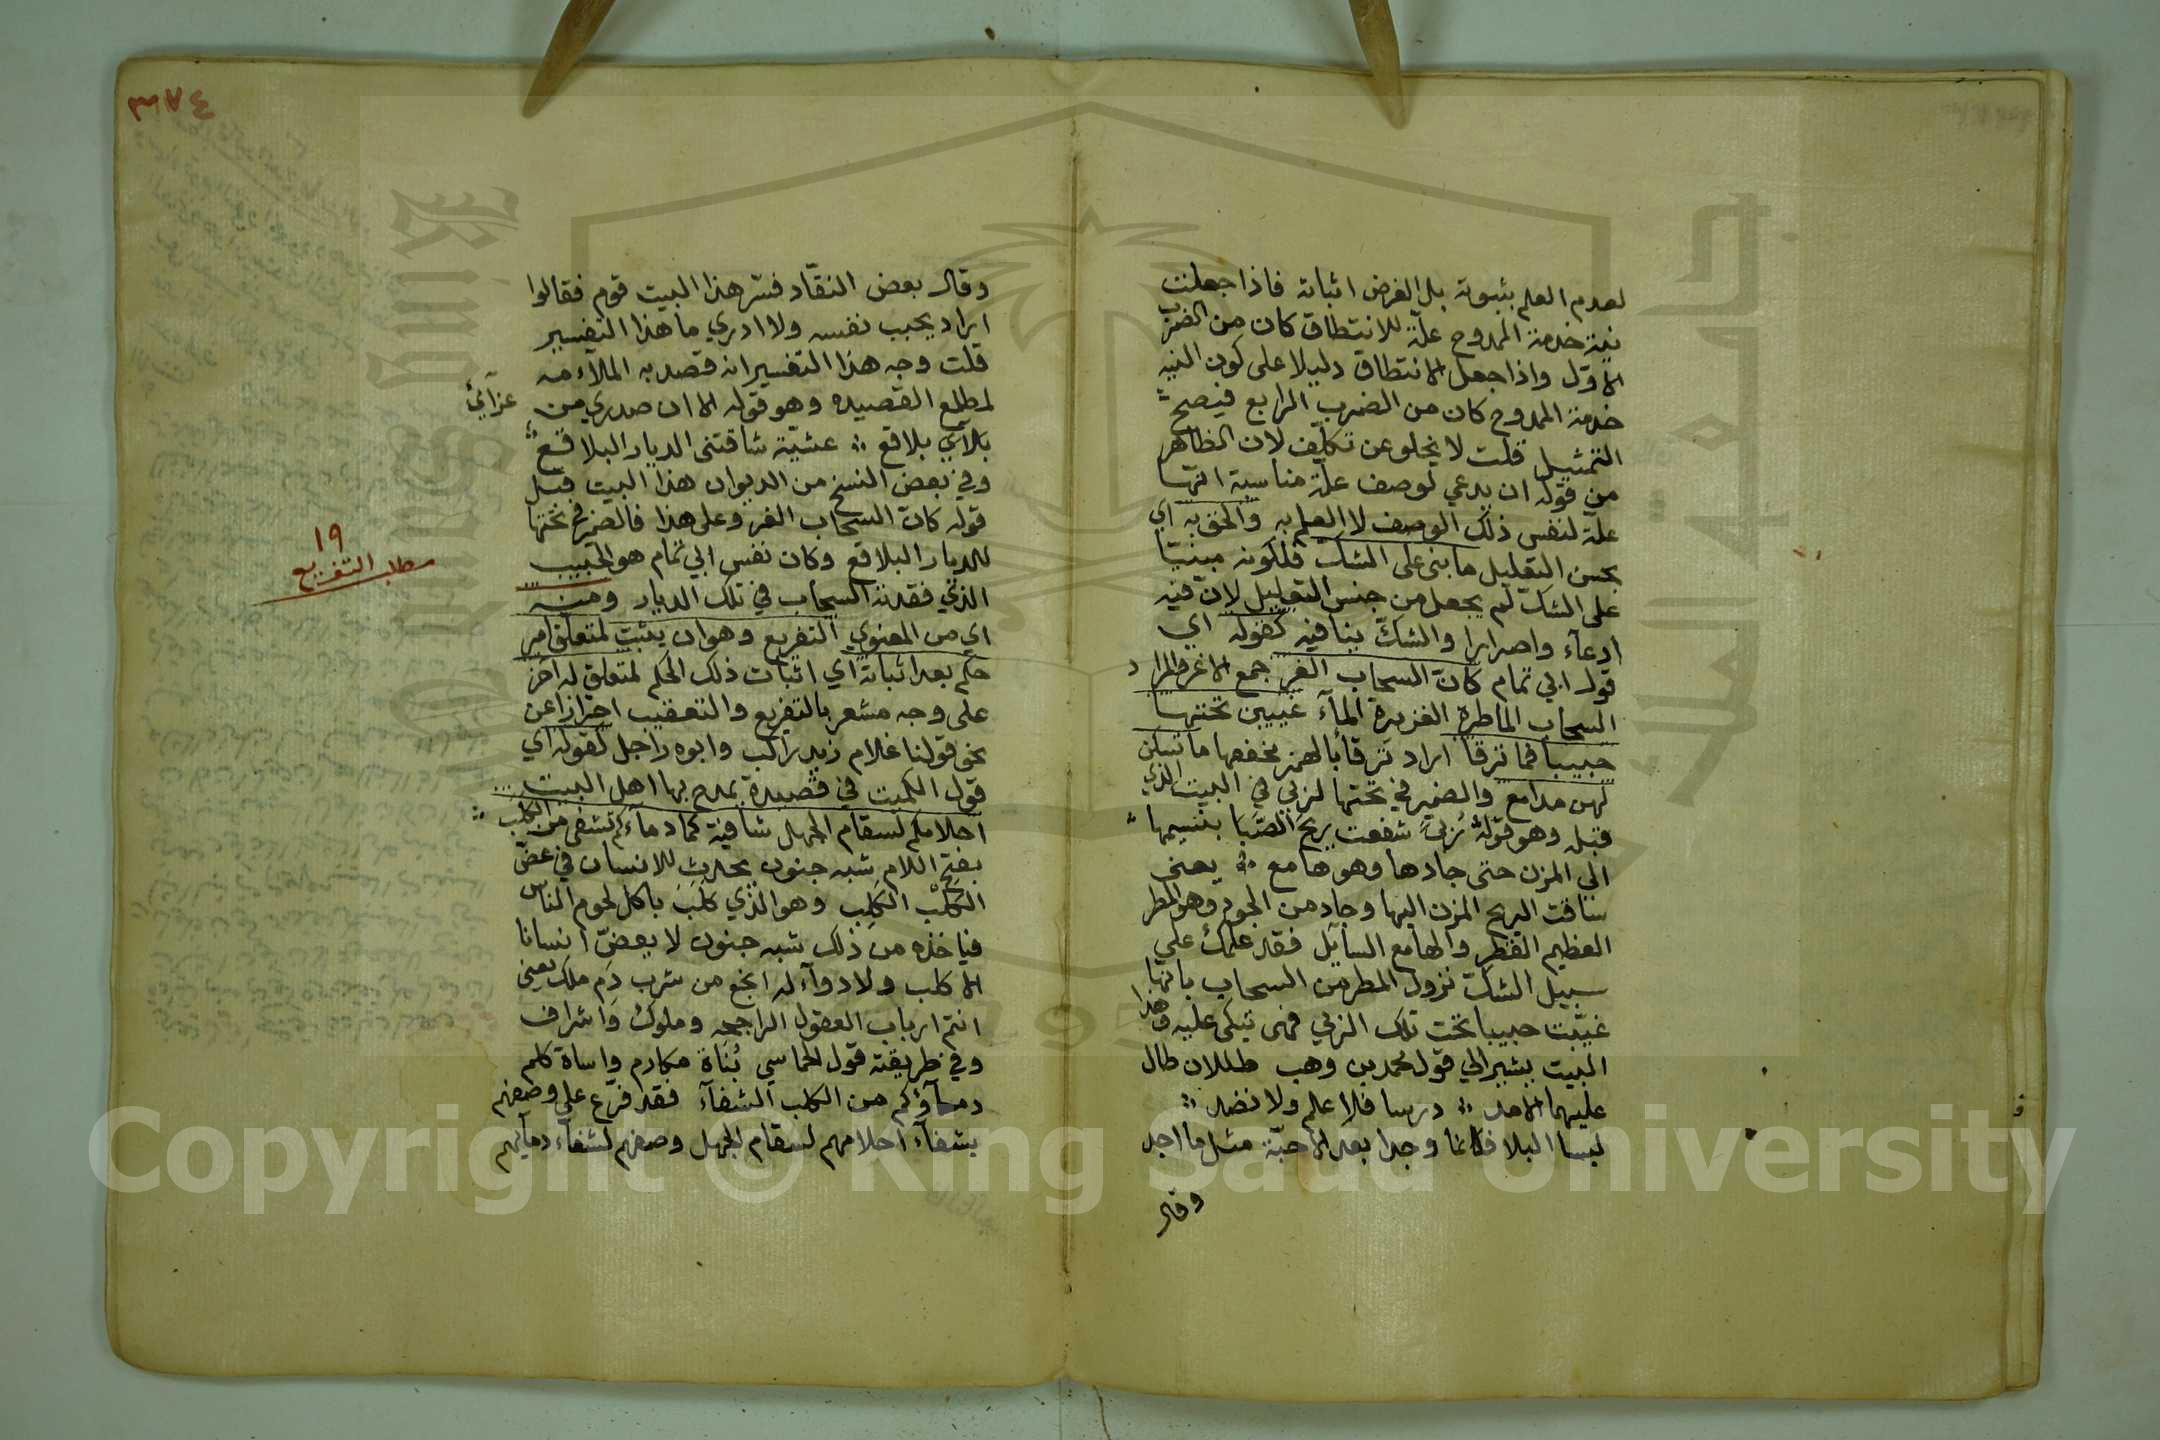 لعدم العلم بثبوته بل الغرض اثباته فاذا جعلت
نية خدمة الممدوح علّة للانتطاق كان من الضرب
الاوّل واذا جعل الانتطاق دليلا على كون النية
خدمة الممدوح كان من الضرب الرابع فيصح
التمثيل قلت لا يخلو عن تكلّف لان الظاهر
من قوله ان يدعي لوصف علّة مناسبة انها
علّة لنفس ذلك الوصف لا العلم به والحق به اي
بحسن التعليل ما بنى على الشك فلكونه مبنيّا
على الشك لم يجعل من جنس التعليل لانّ فيه
ادعآء واصرارا والشكّ ينافيه كقوله اي
قول ابي تمام كانّ السحاب الغر جمع الاغر والمراد
السحاب الماطرة الغزيرة المآء غيبين تحتها
حبيبا فما ترقا اراد ترقأ بالهمز فخففها ما تبكن
لهن مدامع والضمير في تحتها لربي في البيت الذي
قبله وهو قوله رُبىً شفعت ريح الصَّبا بنسيمها
الى المزن حتى جادها وهو هامع يعنى
ساقت الريح المزن اليها وجاد من الجود وهو المطر
العظيم القطر والهامع السايل فقد علّل على
سبيل الشك نزول المطر من السحاب بانها
غيّبت حبيبا تحت تلك الربي فهى تبكى عليه وهذا
البيت يشير الى قول محمد بن وهب طللان طال
عليهما الامد درسا فلا علم ولا نضد
لبسا البلا فكانما وجدا بعد الاحبّة مثل ما اجد
وقال
٣٨٤
وقال بعض النقّاد فسّر هذا البيت قوم فقالوا
اراد بحبيب نفسه ولا ادري ما هذا التفسير
قلت وجه هذا التفسير انه قصد به الملآءمه
لمطلع القصيده وهو قوله الا ان صدري من
عزآئي
بلآقي بلاقع عشيّة شاقتنى الديار البلاقع
وفي بعض النسخ من الديوان هذا البيت قبل
قوله كانّ السحاب الغر وعلى هذا فالضمير في تحتها
للديار البلاقع وكان نفس ابي تمام هو الحبيب
الذي فقدته السحاب في تلك الديار ومنه
١٩
مطلب التفريع
اي من المعنوي التفريع وهو ان يثبت لمتعلق امر
حكم بعد اثباته اي اثبات ذلك الحكم لمتعلق له آخر
على وجه مشعر بالتفريع والتعقيب احترازا عن
نحو قولنا غلام زيد راكب وابوه راجل كقوله اي
قول الكميت في قصيدة يمدح بها اهل البيت
احلامكم لسقام الجهل شافية كما دمآءكم تشفى من الكلب
بفتح اللام شبه جنون يحدث للانسان في عضّ
الكلْب الكَلِب وهو الذي كَلَبَ باكل لحوم الناس
فياخذه من ذلك شبه جنون لا يعضّ انسانا
الا كلب ولا دوآء له انجع من شرب دَم ملك يعنى
انتم ارباب العقول الراجحه وملوك واشراف
وفي طريقته قول الحماسي بُناة مكارم واساة كلم
دمآؤكم من الكلب الشفآء فقد فرّع على وصفهم
بشفآء احلامهم لسقام الجهل وصفهم لشفآء دمآئهم
Copyright © King Saud University